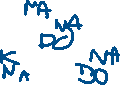 MA
NA
DO
K
NA
NA
DO